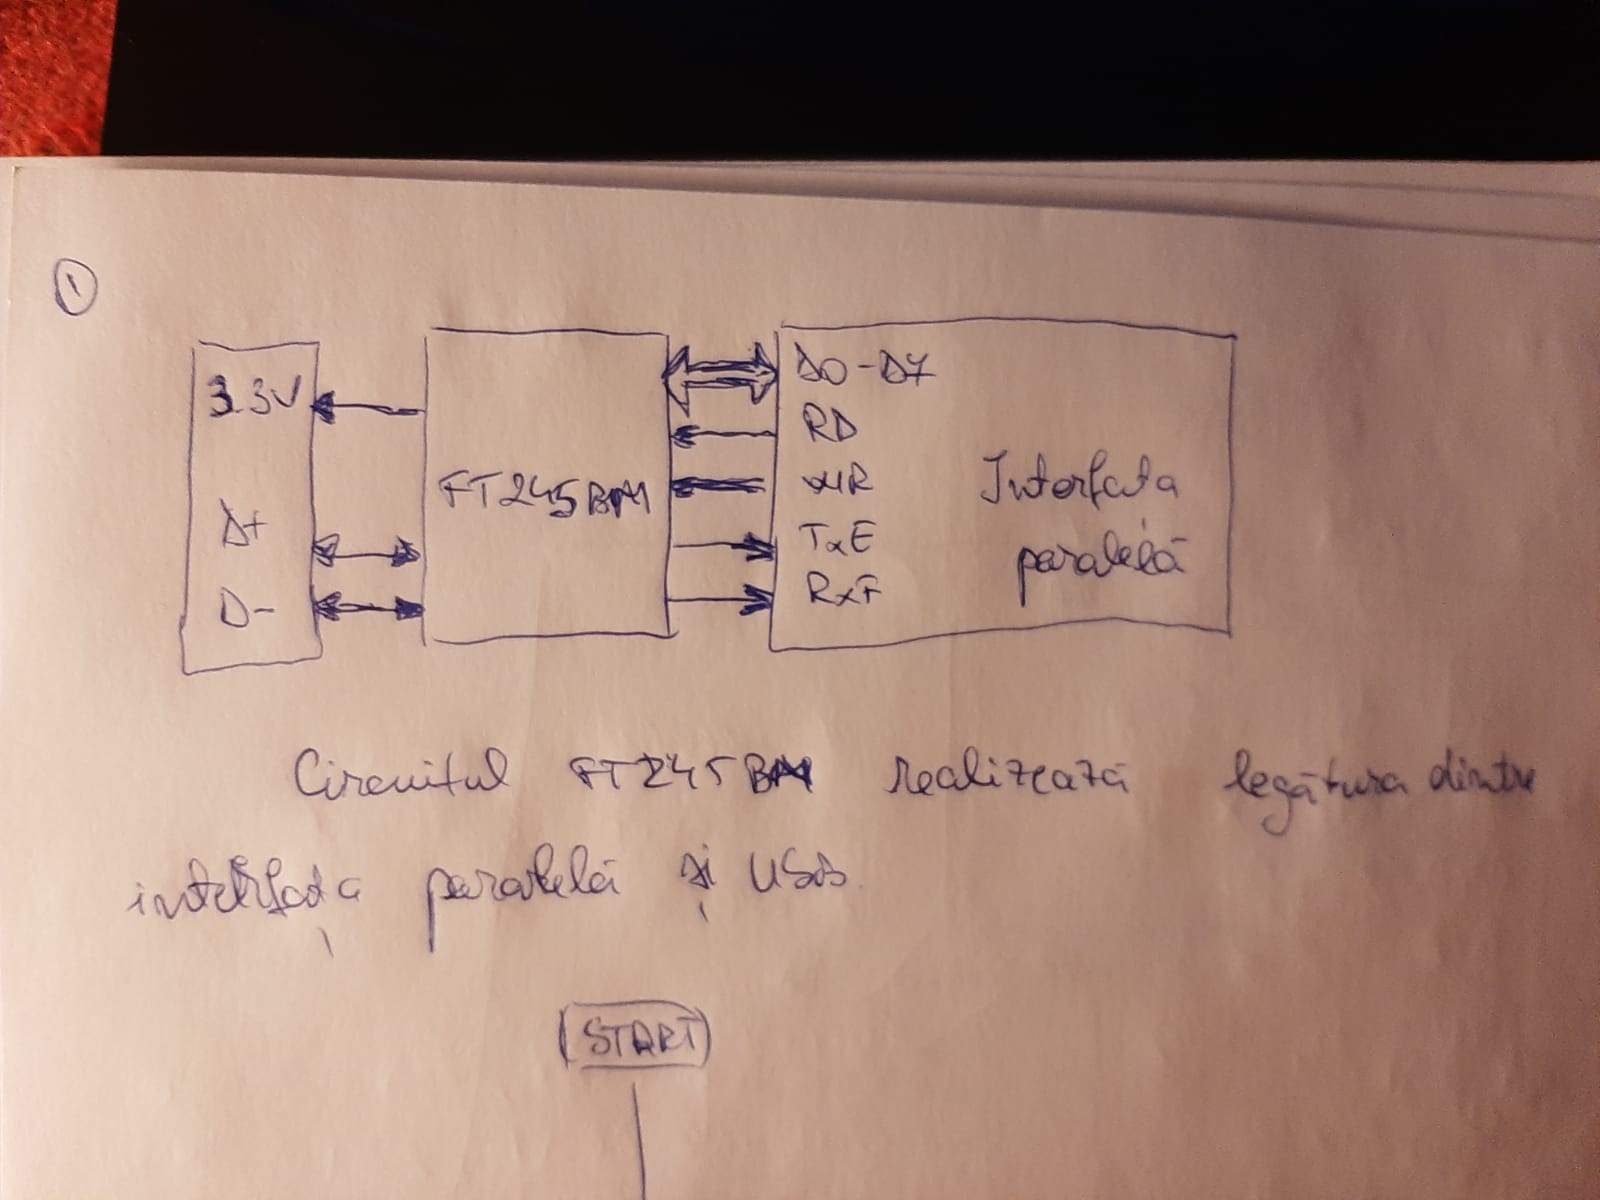 1
3.3V
D+
D-
FT245BM
D0-D7
RD
WR
TxE
RxF
Interfața
paralelă
Circuitul FT245BM realizează legătura dintre
interfața paralelă și USB.
START